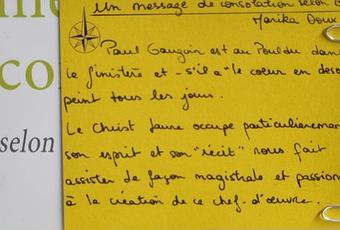 co
selon
Un message de consolation selon
Marika Doux
Paul Gauguin est au Pouldu dans
le finistère et - s'il a "le coeur en déso
peint tous les jours.
Le Christ Jaune occupe particulièremen
son esprit et son "récit" nous fait
assister de façon magistrale et passion
à la création de ce chef-d'œuvre.